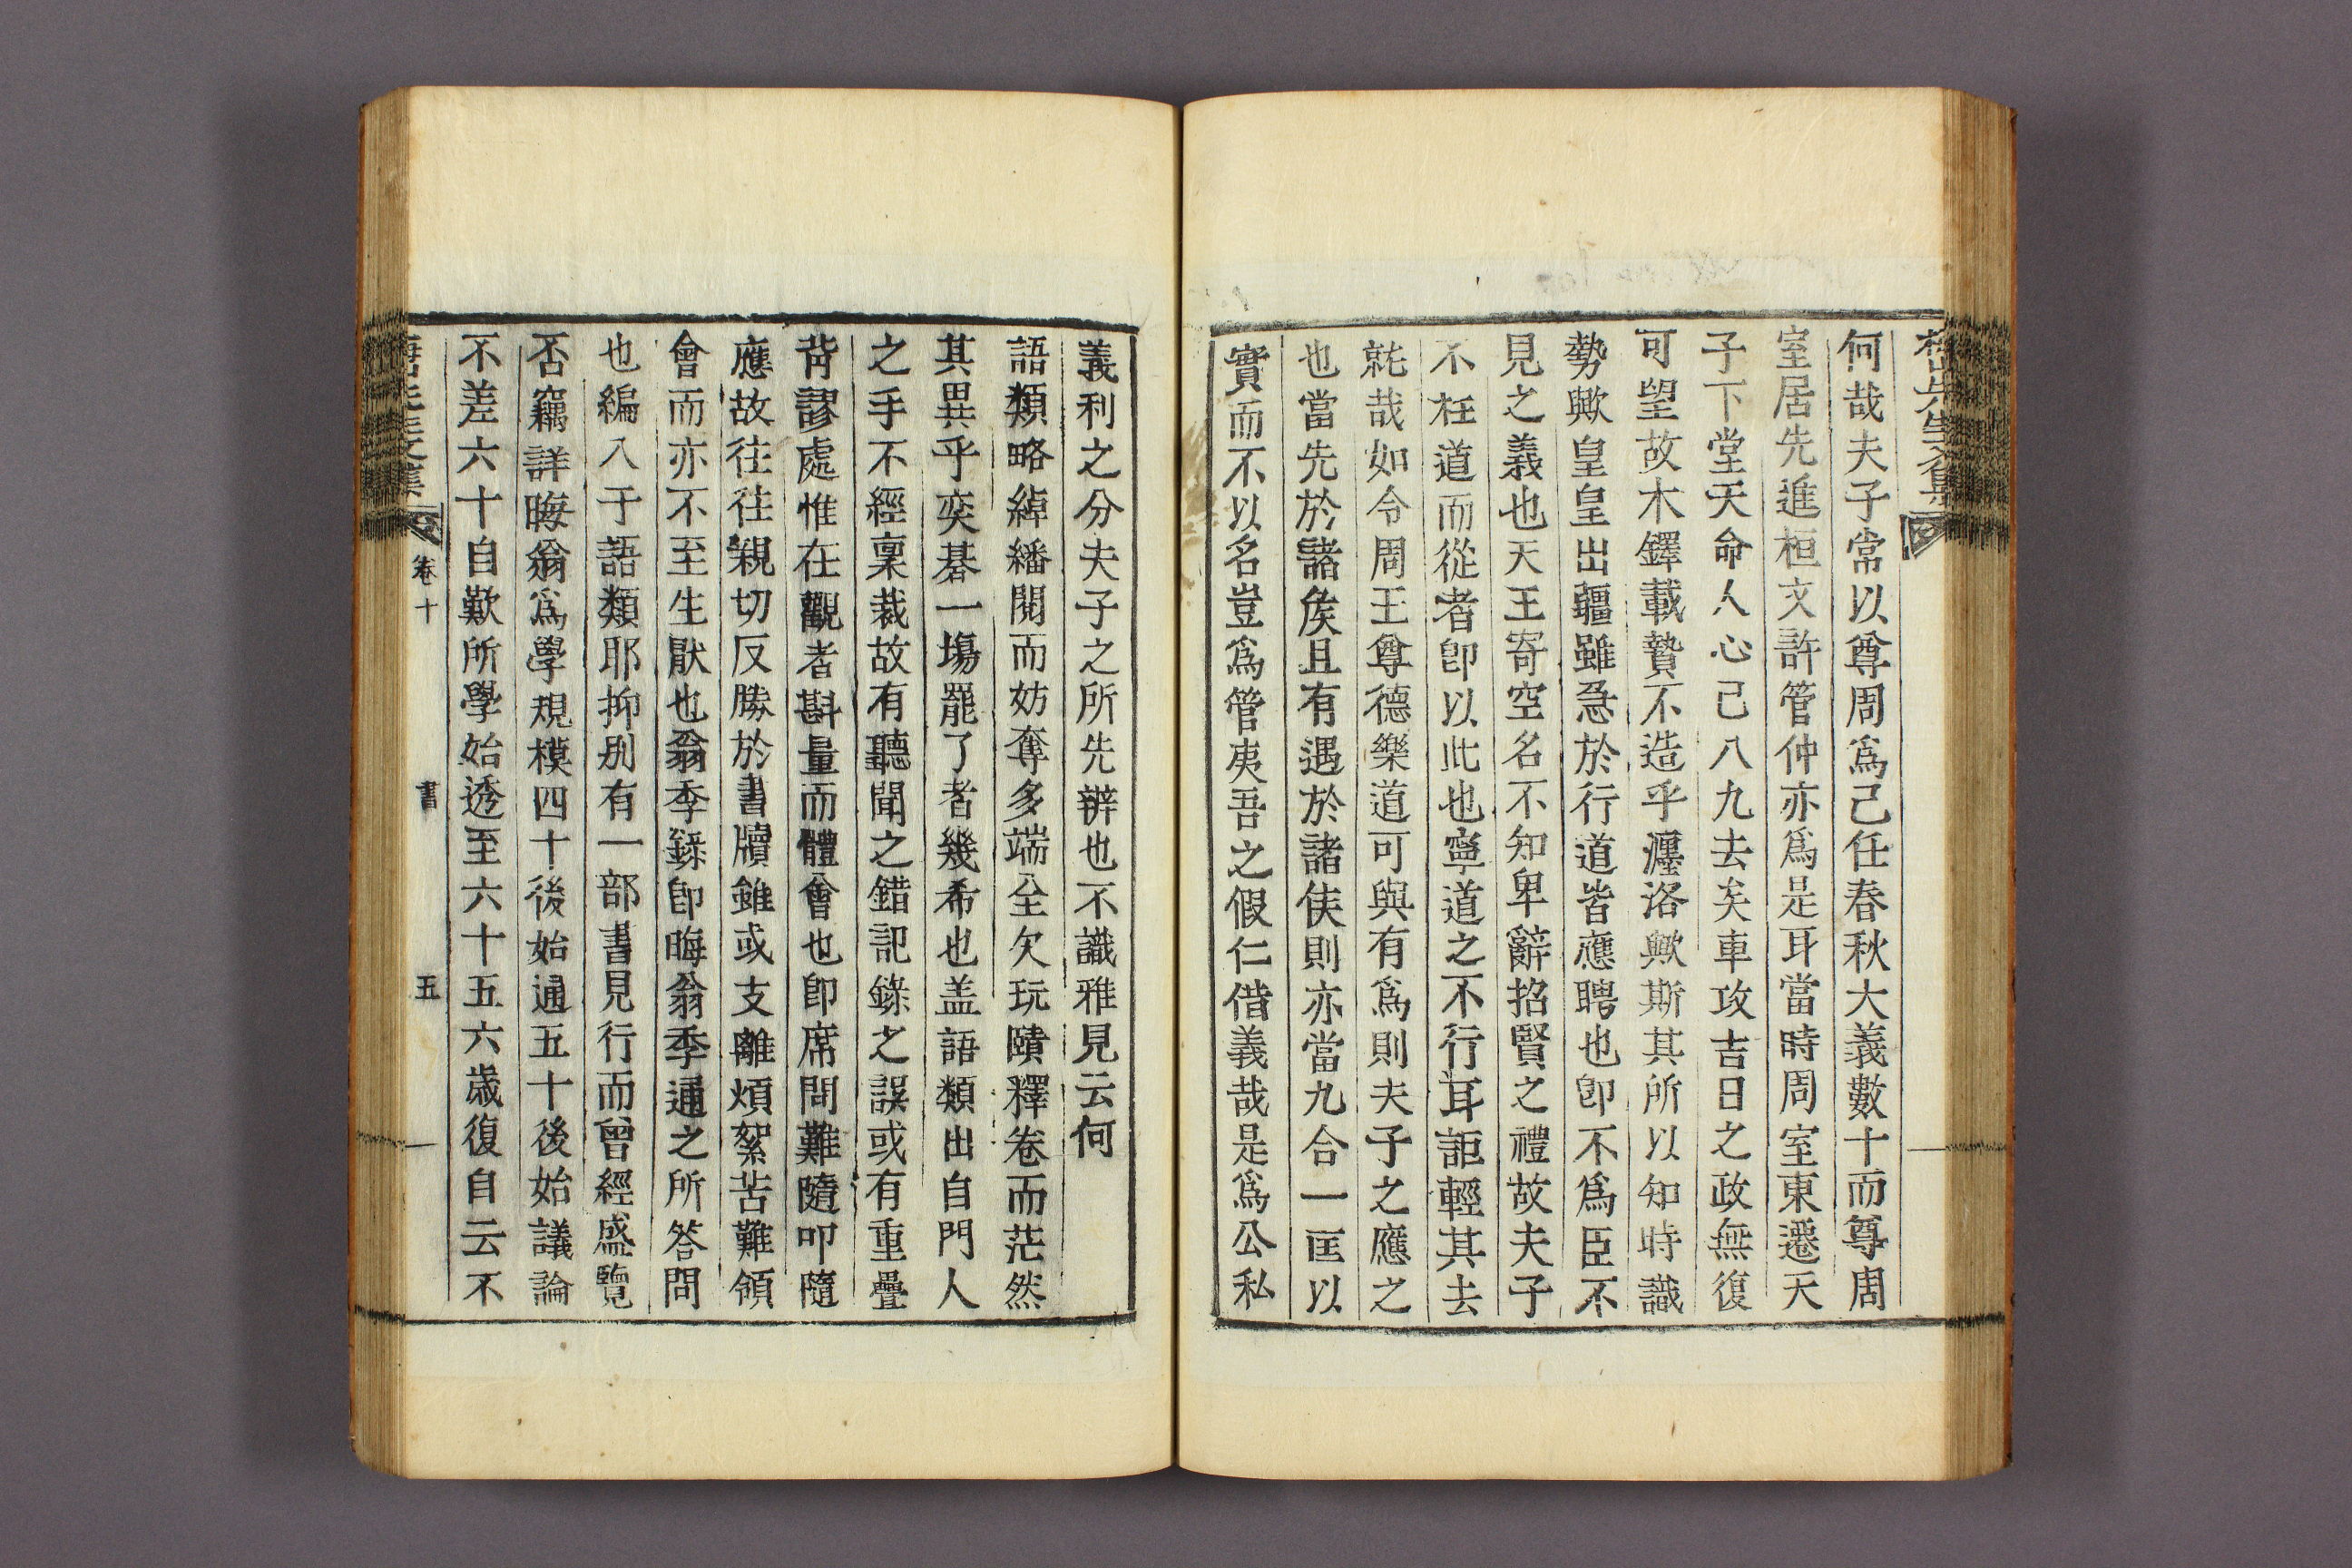 何哉夫子常以尊周爲己任春秋大義數十而尊周
室居先進桓文許管仲亦爲是耳當時周室東遷天
子下堂天命人心已八九去矣車攻吉日之政無復
可望故木鐸載贄不造乎瀍洛歟斯其所以知時識
勢歟皇皇出疆雖急於行道皆應聘也卽不爲臣不
見之義也天王寄空名不知卑辭招賢之禮故夫子
不枉道而從者卽以此也寧道之不行耳詎輕其去
就哉如令周王尊德樂道可與有爲則夫子之應之
也當先於諸矦且有遇於諸侯則亦當九合一匡以
實而不以名豈爲管夷吾之假仁借義哉是爲公私
義利之分夫子之所先辨也不識雅見云何
語類略綽繙閱而妨奪多端全欠玩賾釋卷而茫然
其異乎奕碁一場罷了者幾希也盖語類出自門人
之手不經稟裁故有聽聞之錯記錄之誤或有重疊
背謬處惟在觀者斟量而體會也卽席問難隨叩隨
應故往往親切反勝於書牘雖或支離煩絮苦難領
會而亦不至生厭也翁季錄卽晦翁季通之所答問
也編入于語類耶抑別有一部書見行而曾經盛覽
否竊詳晦翁爲學規模四十後始通五十後始議論
不差六十自歎所學始透至六十五六歲復自云不
卷十
書
五